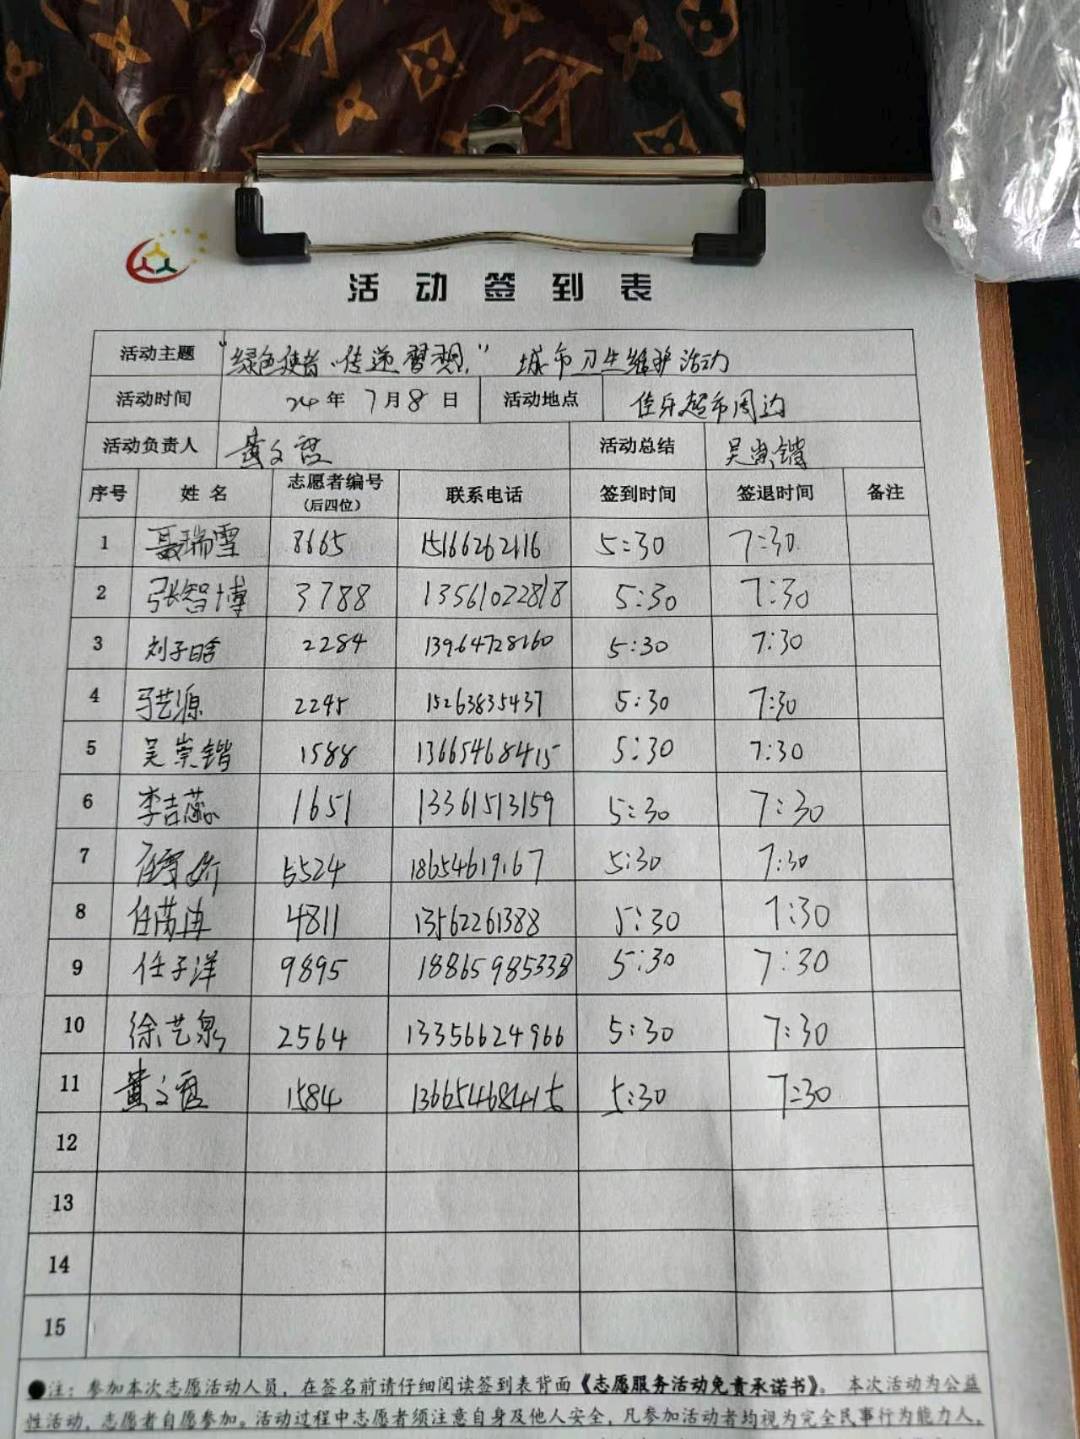 活动签到表
活动主题 “绿色使者 传递 城市卫生维护活动
活动时间 24年7月8日 活动地点 佳乐超市周边
活动负责人 黄文 活动总结 吴崇锴
序号 姓名 志愿者编号(后四位) 联系电话 签到时间 签退时间 备注
1 聂瑞雪 8665 15166262116 5:30 7:30
2 张智博 3788 13561022818 5:30 7:30
3 刘子晗 2284 13964728160 5:30 7:30
4 马艺源 2295 15263835437 5:30 7:30
5 吴崇锴 1588 13665468415 5:30 7:30
6 李吉蕊 1651 13361513159 5:30 7:30
7 5524 5:30 7:30
8 任芮冉 4811 13562261388 5:30 7:30
9 任子洋 9895 18865985338 5:30 7:30
10 徐艺泉 2564 13356624966 5:30 7:30
11 黄文 1584 13665468415 5:30 7:30
12
13
14
15
●注：参加本次志愿活动人员，在签名前请仔细阅读签到表背面《志愿服务活动免责承诺书》。本次活动为公益
性活动，志愿者自愿参加。活动过程中志愿者须注意自身及他人安全，凡参加活动者均视为完全民事行为能力人，